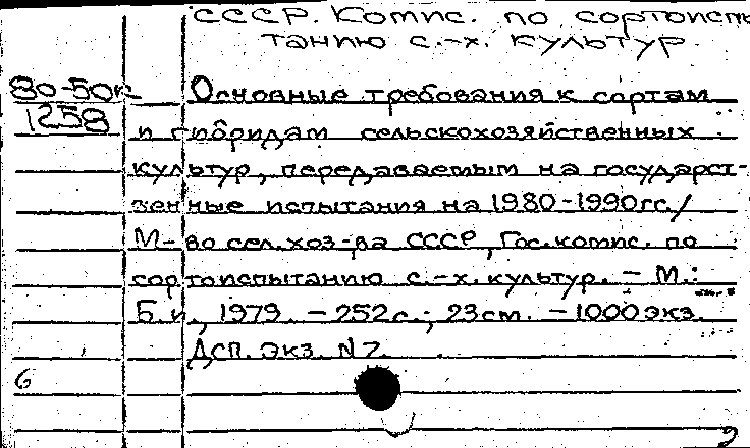 СССР. Комис. по сортоиспы-
танию с.-х. культур.
80-50к
1258
Основные требования к сортам
и гибридам сельскохозяйственных
культур, передаваемым на государст-
венные испытания на 1980-1990гг./
М-во сел. хоз-ва СССР, Гос. комис. по
сортоиспытанию с.-х. культур. - М.:
Б.и., 1979. - 252с.; 23см. - 1000экз.
Дсп. Экз. N7.
6